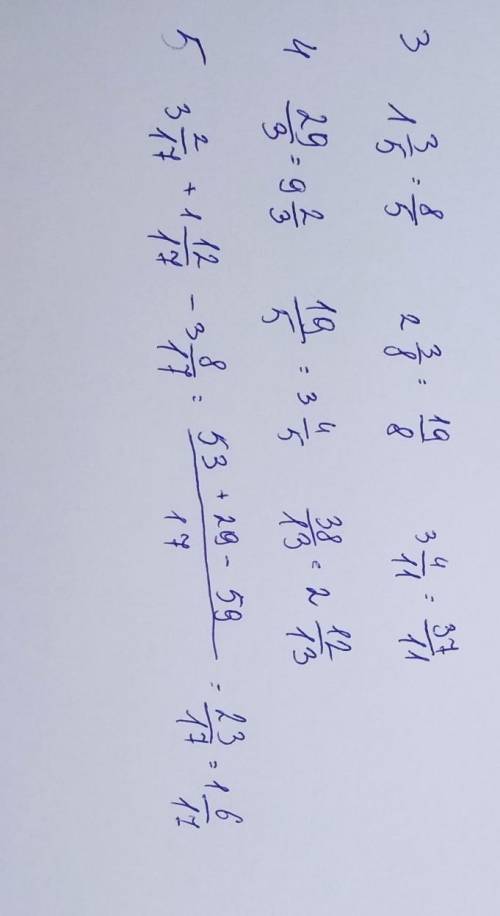 3 1 3/5 = 8/5 2 3/8 = 19/8 3 4/11 = 37/11
4 29/3 = 9 2/3 19/5 = 3 4/5 38/13 = 2 12/13
5 3 2/17 + 1 12/17 - 3 8/17 = (53 + 29 - 59)/17 = 23/17 = 1 6/17